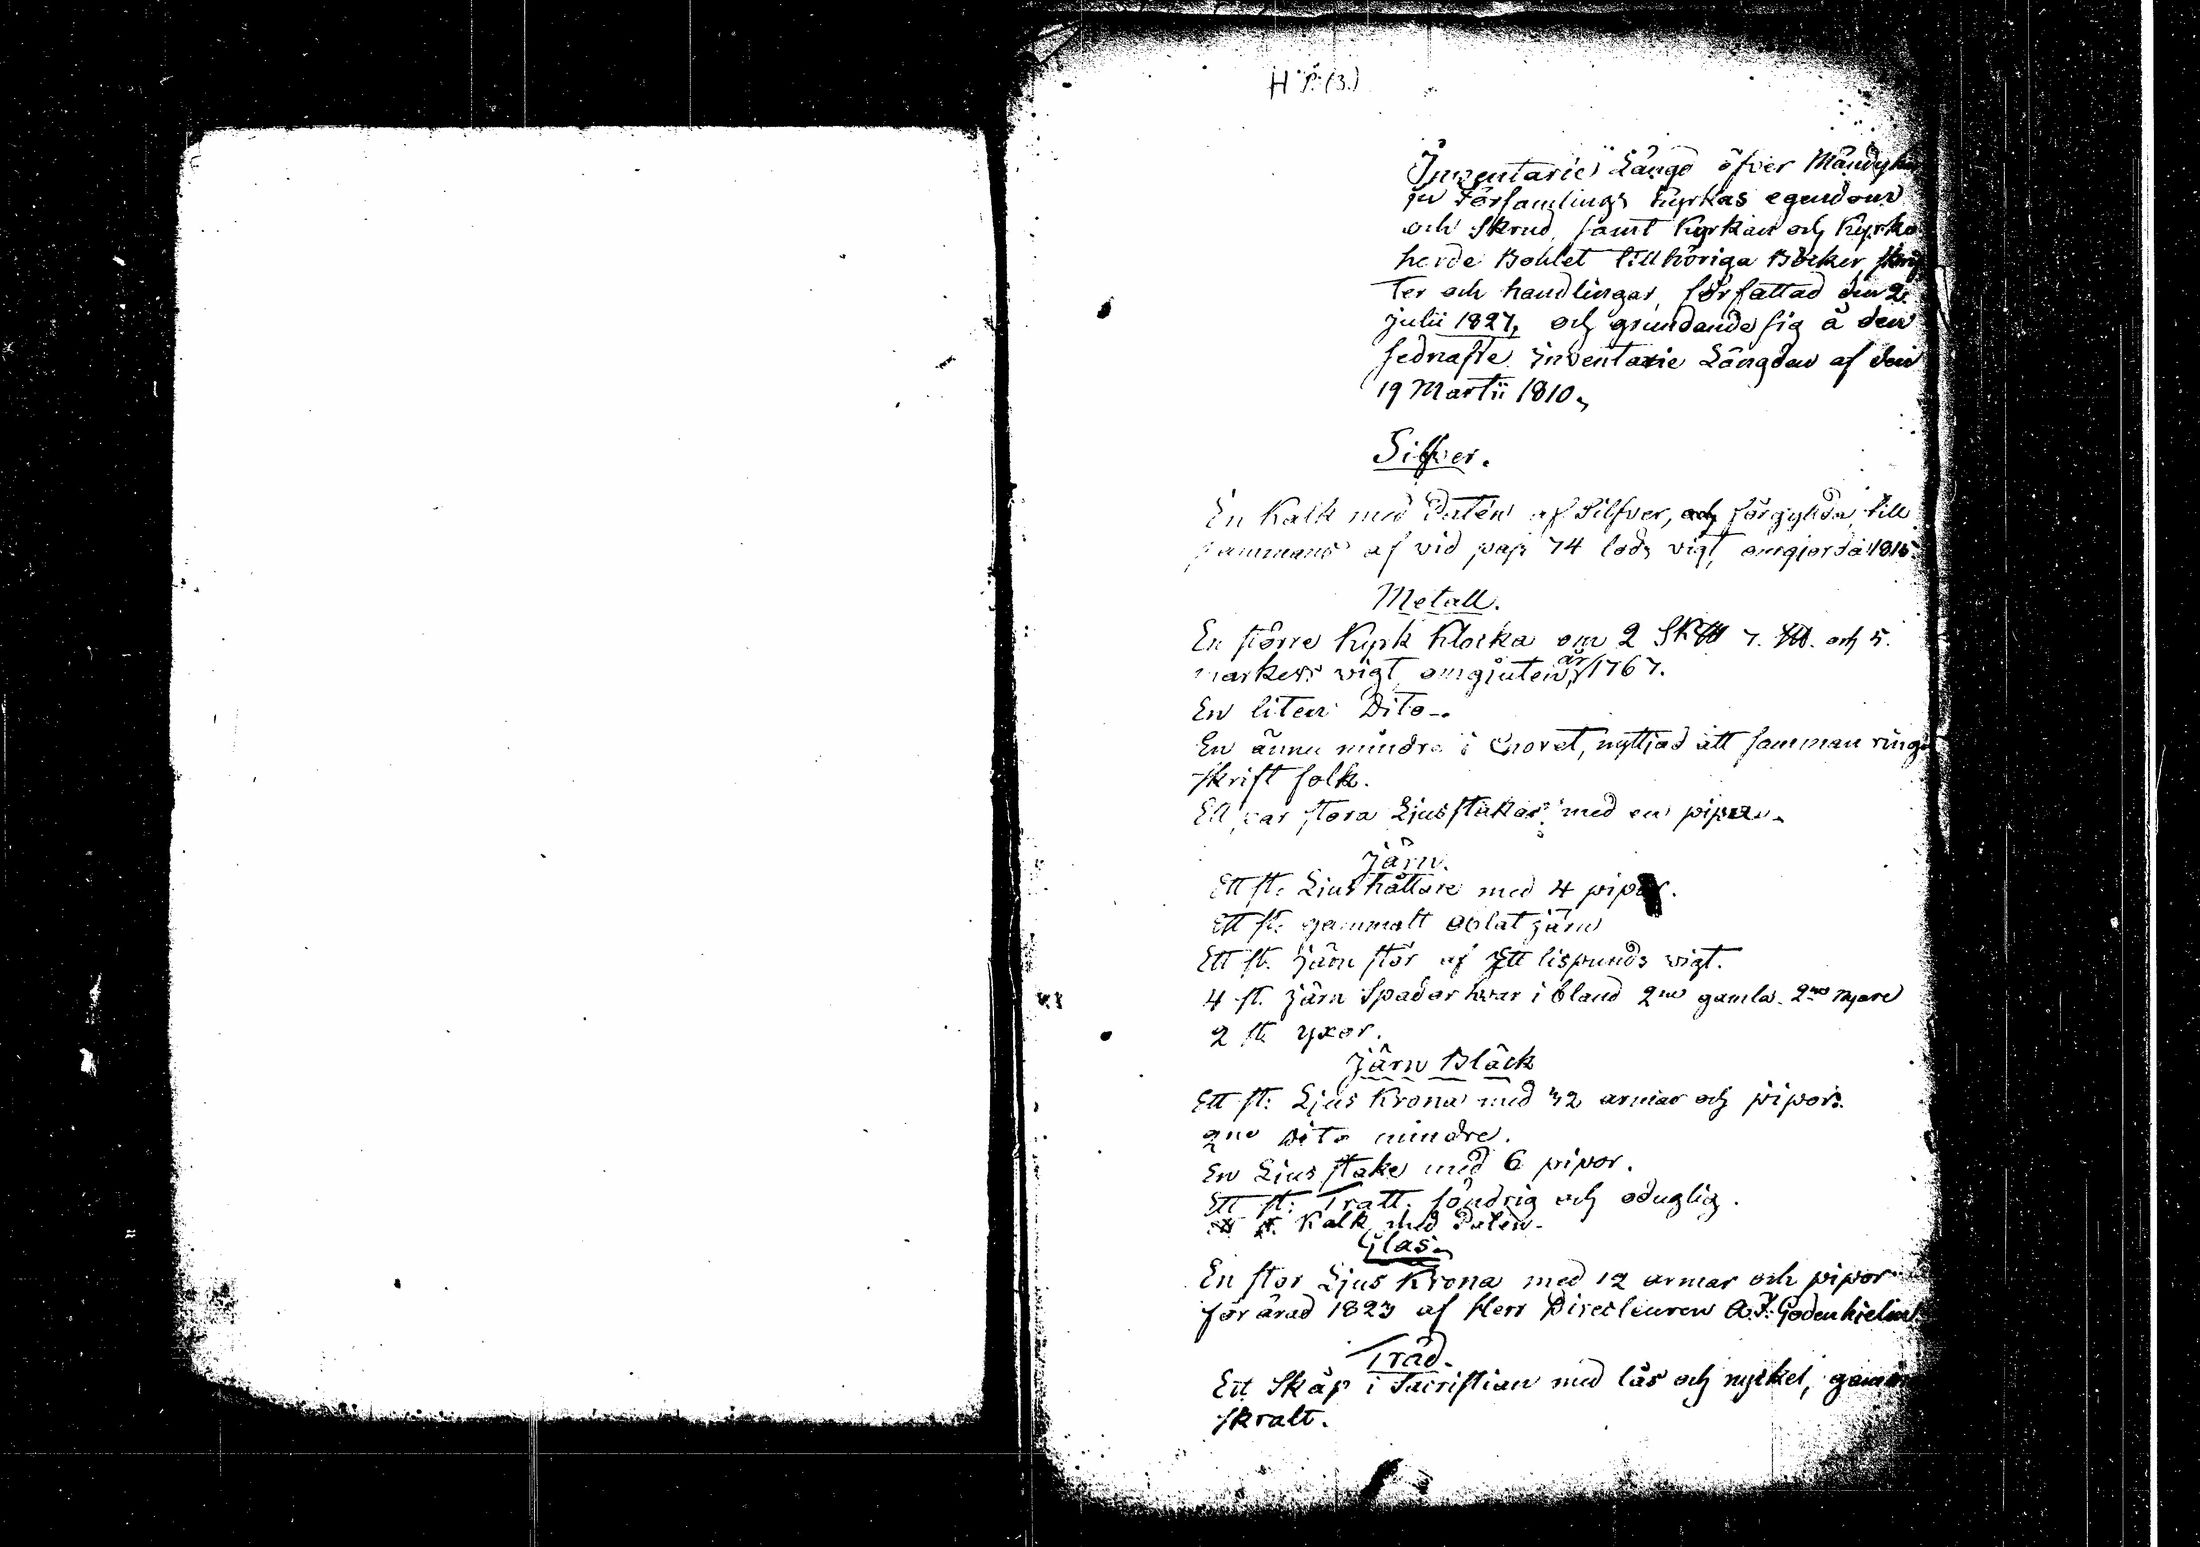 H P. (3.)
Inventarie Längd öfver Mändyha
ju Församlings Kyrkas egendom
och Skrud, samt Kyrkan och Kyrko
herde Bohlet tillhöriga Böcker, skrif
ter och handlingar, författad den 2.
Julii 1827, och grundande sig å den
sednaste inventarie Längden af den
19 Martii 1810.
Silfver.
En Kalk med Patén af Silfver, och förgylda, till
sammans af vid pass 74 lods vigt, omgjorda 1815.
Metall.
En större Kyrk Klocka om 2 Sk℔ 7. L℔. och 5.
markers vigt, omgjuten år 1767.
En liten Dito.
En ännu mindre i Choret, nyttjad att samman ringa
skrift folk.
Ett par stora Ljusstakar med en pipa.
Järn.
Ett st. Ljushållare med 4 pipor.
Ett st. gammalt Oblat järn
Ett st. järn stör af Ett lispunds vigt.
4 st. järn Spadar hvar i bland 2ne gamla. 2ne nyare
2 st. yxor.
Järn Bläck
Ett st: Ljus Krona med 32 armar och pipor.
2ne Dito mindre.
En Ljus stake med 6 pipor.
Ett st: Tratt, söndrig och oduglig.
Kalk med Patén.
Glas.
En stor Ljus Krona med 12 armar och pipor
förärad 1823 af Herr Directeuren Godenhielm.
Träd.
Ett Skåp i Sacristian med lås och nyckel,
skralt.